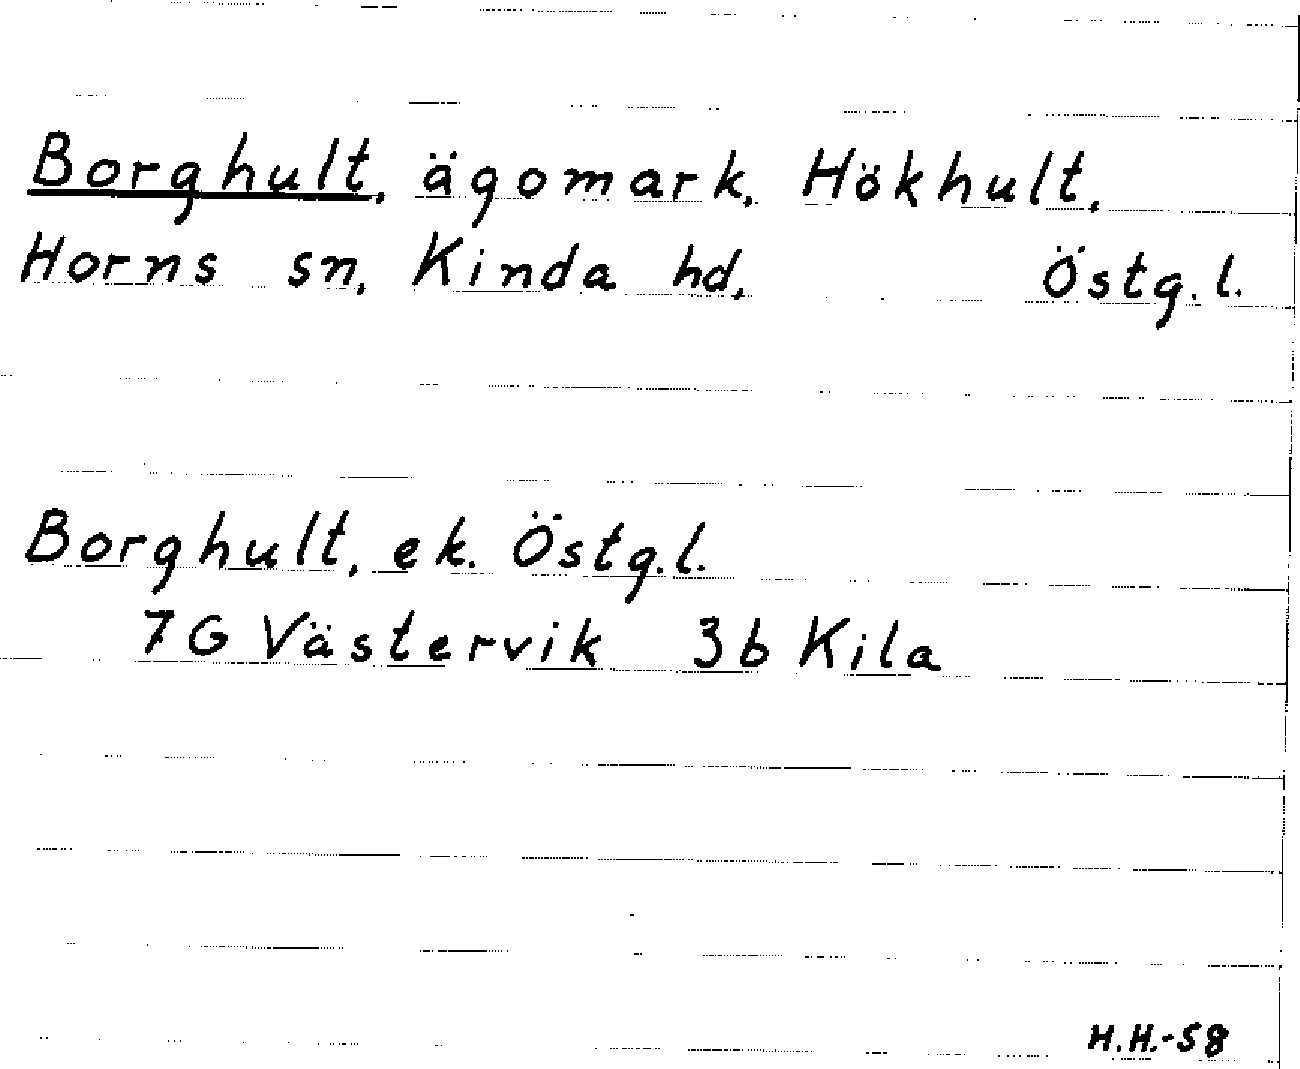 Borghult, ägomark, Hökhult,
Horns sn, Kinda hd, Östg.l.
Borghult, ek. Östg.l.
7G Västervik 3b Kila
H.H.-58